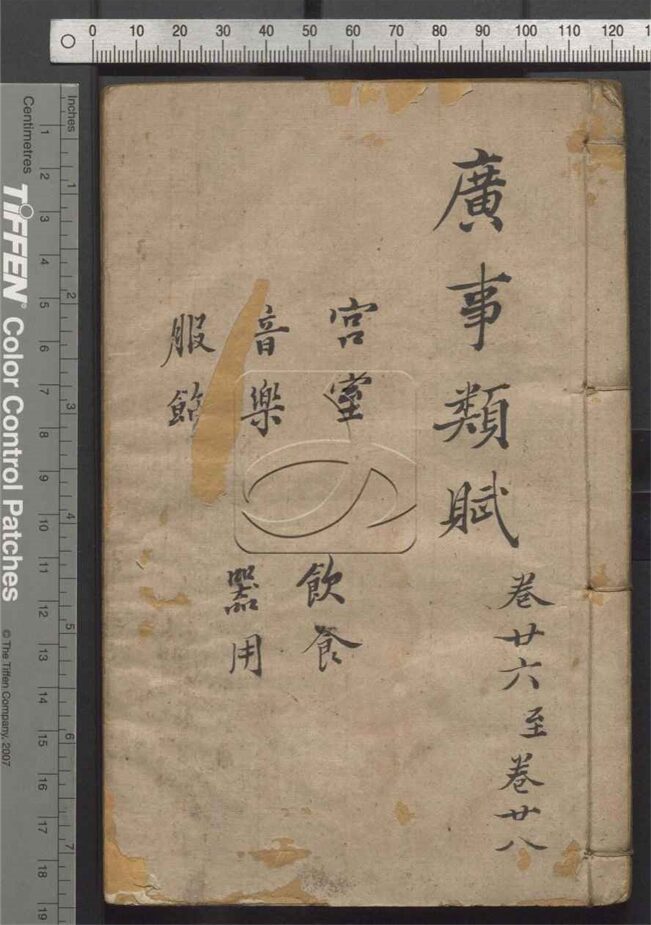 廣事類賦
卷廿六至卷廿八
宮室
飲食
音樂
器用
服飾
0 10 20 30 40 50 60 70 80 90 100 110 120
Inches
1 2 3 4 5 6 7
Centimetres
1 2 3 4 5 6 7 8 9 10 11 12 13 14 15 16 17 18 19
TIFFEN® Color Control Patches
© The Tiffen Company, 2007